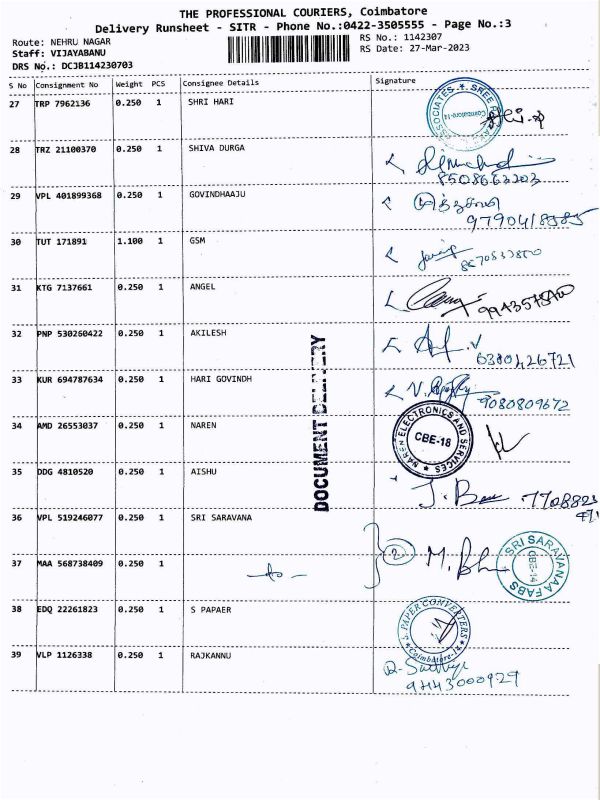 THE PROFESSIONAL COURIERS, Coimbatore
Delivery Runsheet - SITR - Phone No.:0422-3505555 - Page No.:3
Route: NEHRU NAGAR
RS No.: 1142307
Staff: VIJAYABANU
RS Date: 27-Mar-2023
DRS No.: DCJB114230703
S No Consignment No Weight PCS Consignee Details Signature
27 TRP 7962136 0.250 1 SHRI HARI
ASSOCIATES SREE
Coimbatore-14
28 TRZ 21100370 0.250 1 SHIVA DURGA
8508663203
29 VPL 401899368 0.250 1 GOVINDHAAJU
9790418585
30 TUT 171891 1.100 1 GSM
31 KTG 7137661 0.250 1 ANGEL
32 PNP 530260422 0.250 1 AKILESH
6380426721
33 KUR 694787634 0.250 1 HARI GOVINDH
9080809672
34 AMD 26553037 0.250 1 NAREN
NAREN ELECTRONICS AND SERVICES
CBE-18
35 DDG 4810520 0.250 1 AISHU
DOCUMENT DELIVERY
36 VPL 519246077 0.250 1 SRI SARAVANA
2
SRI SARAVANAA FABS
CBE-14
37 MAA 568738409 0.250 1
38 EDQ 22261823 0.250 1 S PAPAER
PAPER CONVERTERS
Coimbatore-1
39 VLP 1126338 0.250 1 RAJKANNU
9443000929